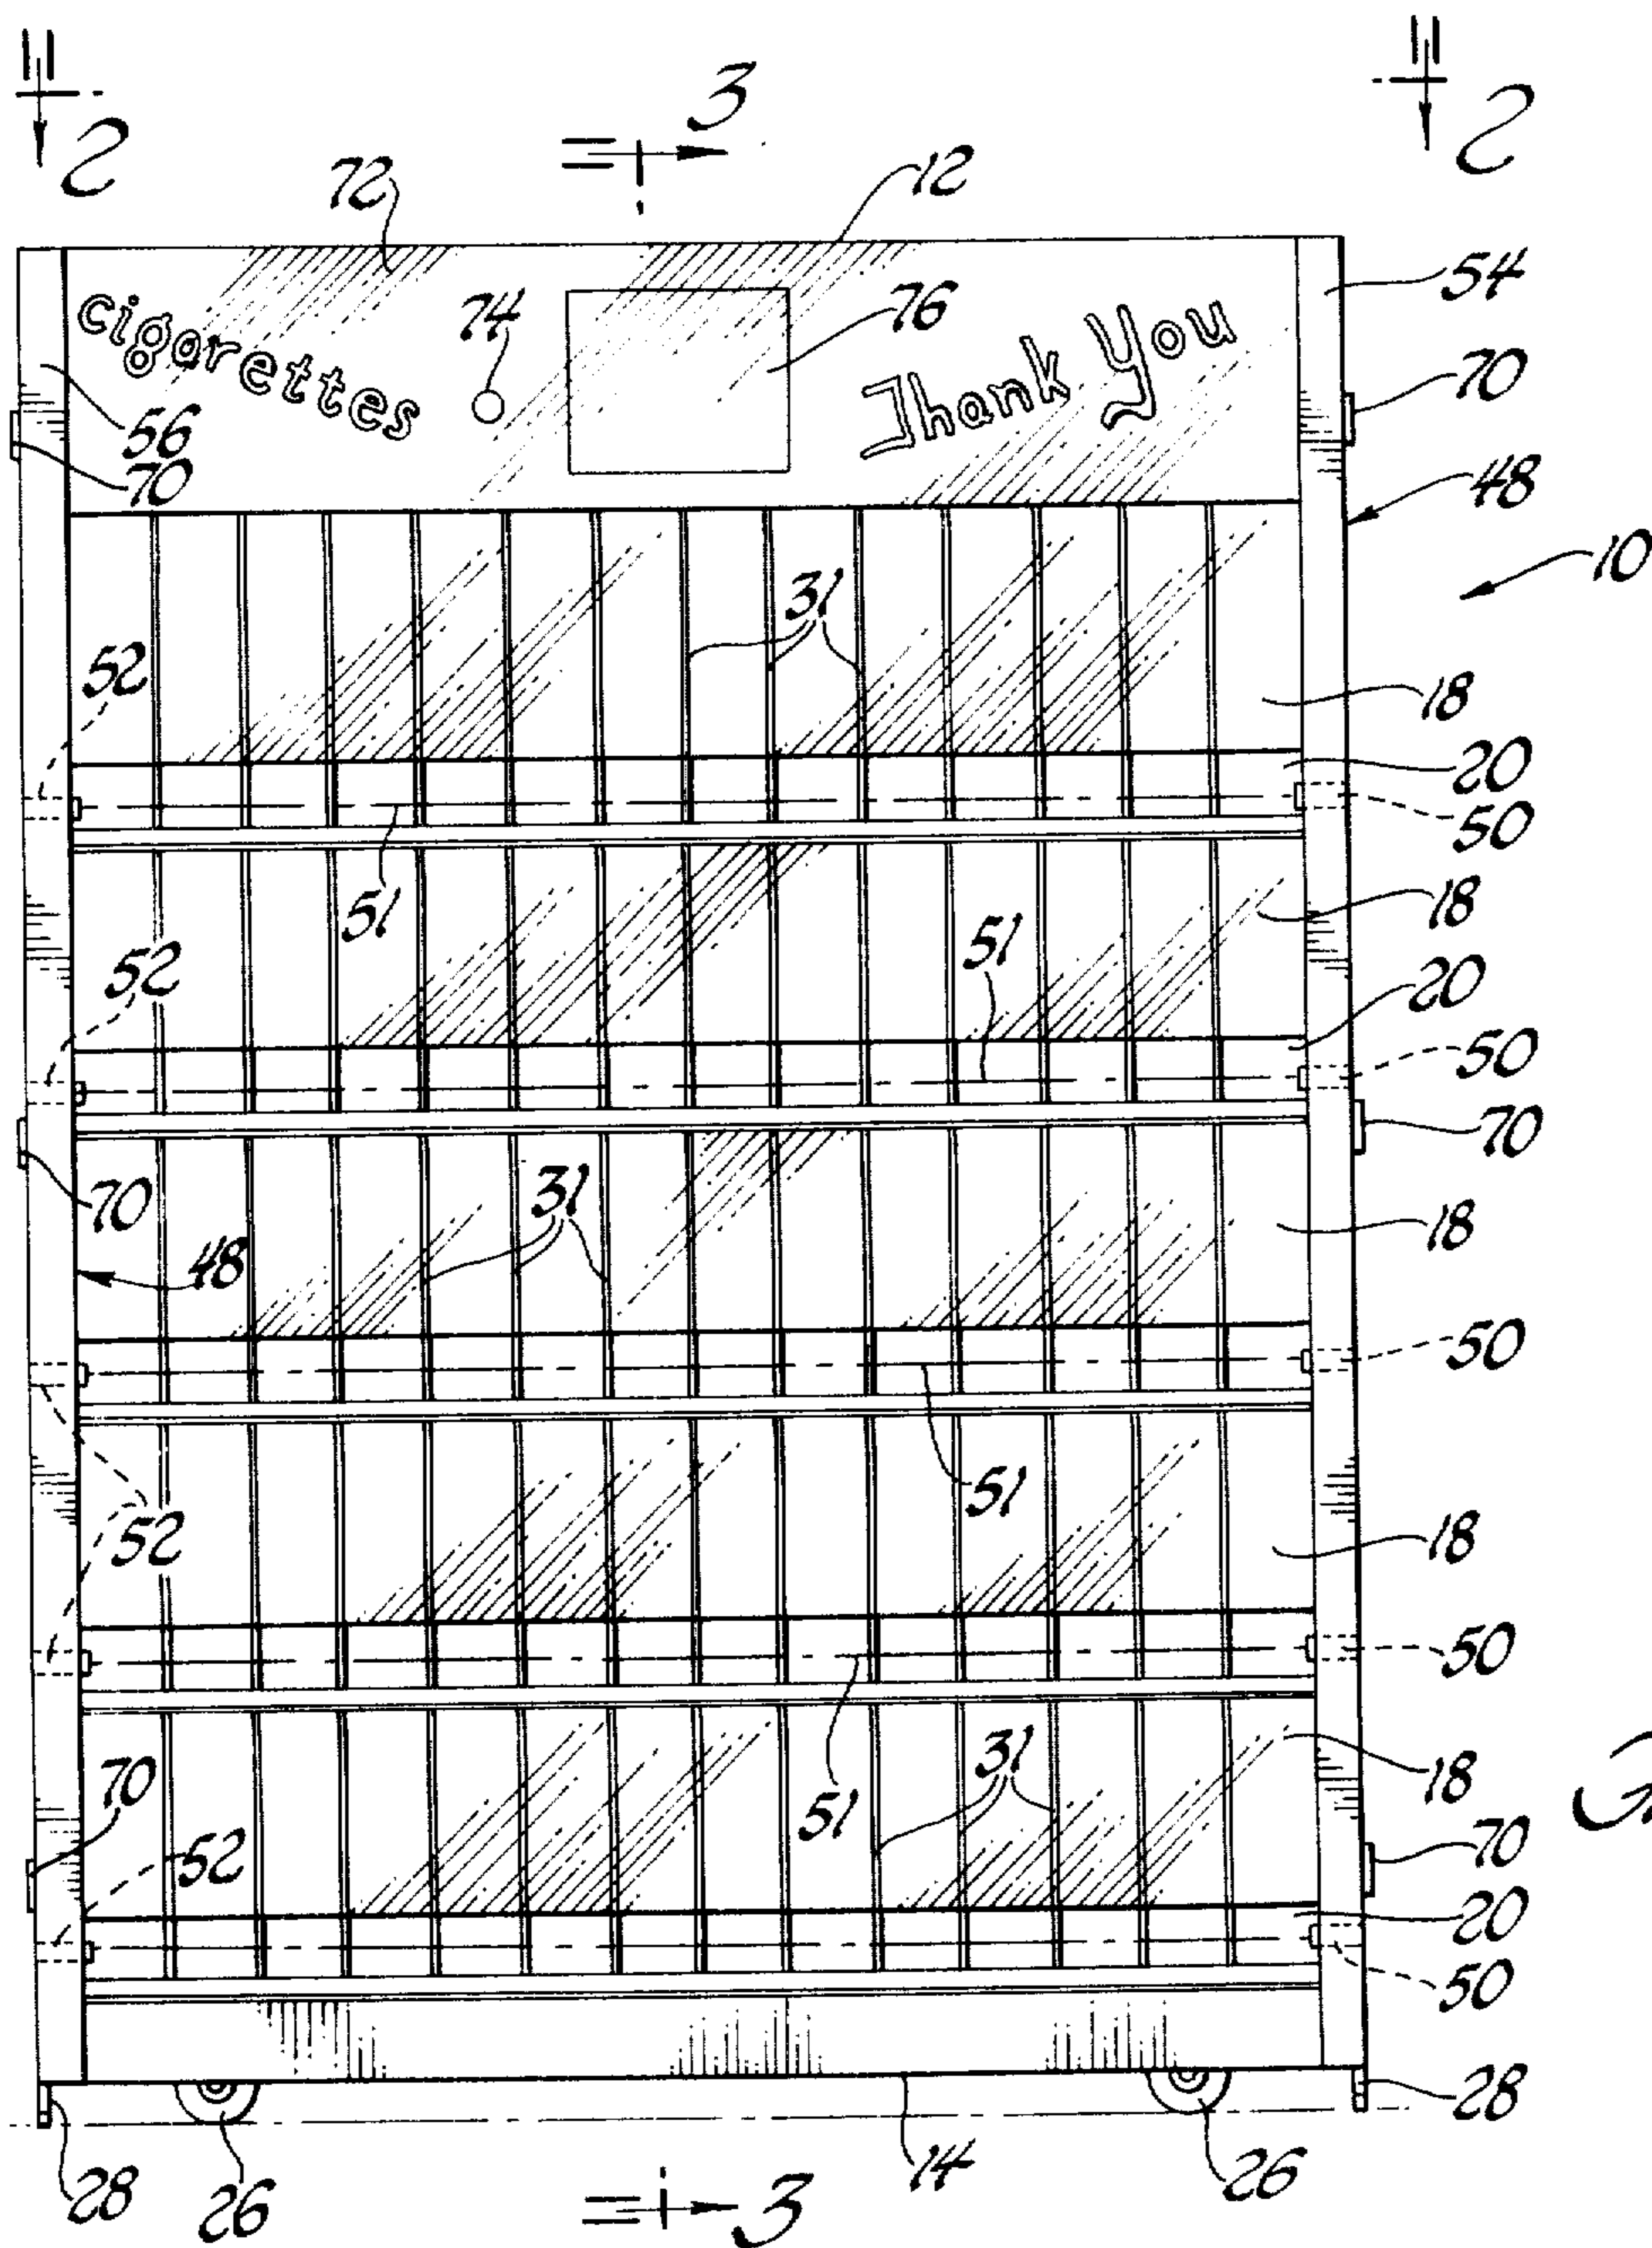 2 2
3
72 12
54
cigarettes 74 76 Thank You
70
56
70
48
10
31
52
18
20
50
51
18
52
51
20
50
70
70
31
18
48
50
51
52
18
50
31
18
70
51
70
52
20
50
28
28 26 14 26
3